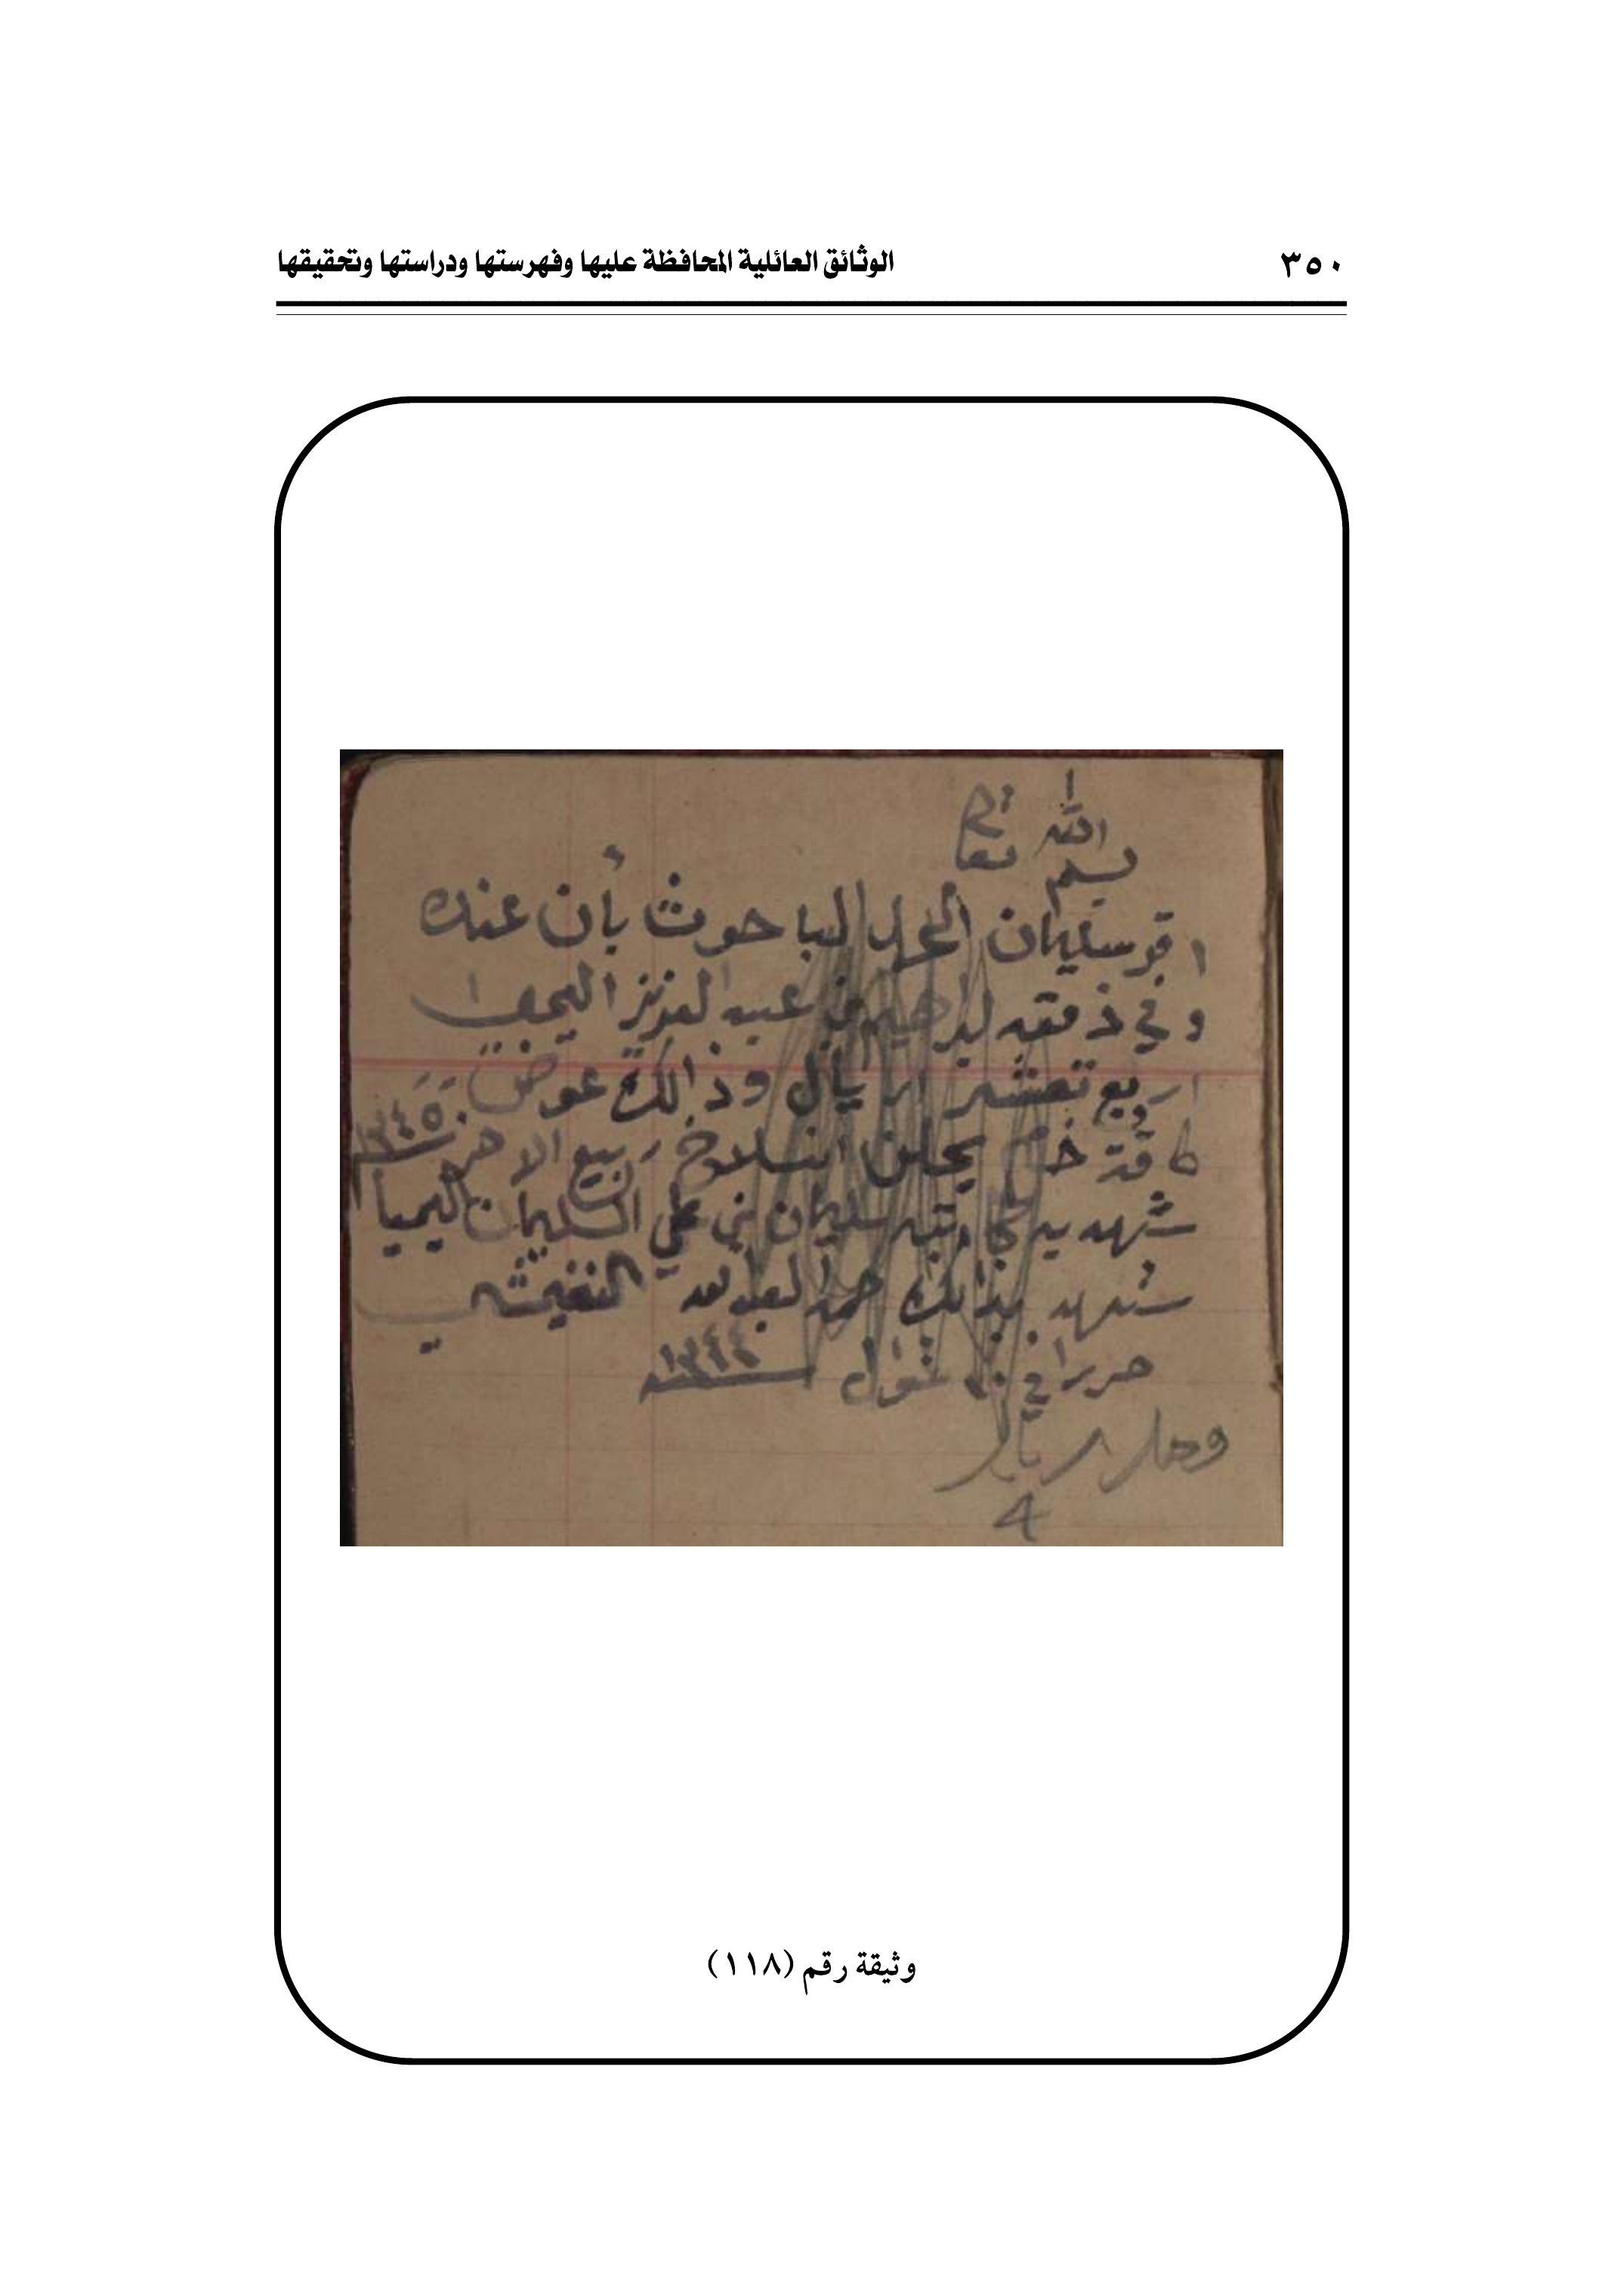 ٣٥٠
الوثائق العائلية المحافظة عليها وفهرستها ودراستها وتحقيقها
بسم الله تعالى
اقر سليمان المحمد الباحوث بأن عنده
وفي ذمته لبراهيم بن عبد العزيز اليحيا
اربع تعشر اريال وذالك عوض
طاقة خام يحلن انسلاخ ربيع الاخر ١٣٤٥
شهد به كاتبه سليمان بني علي السليمان
شهد بذالك حمد العبد الله النغيمشي
حررا في شوال ١٣٤٤
وصل ريال
4
وثيقة رقم (١١٨)